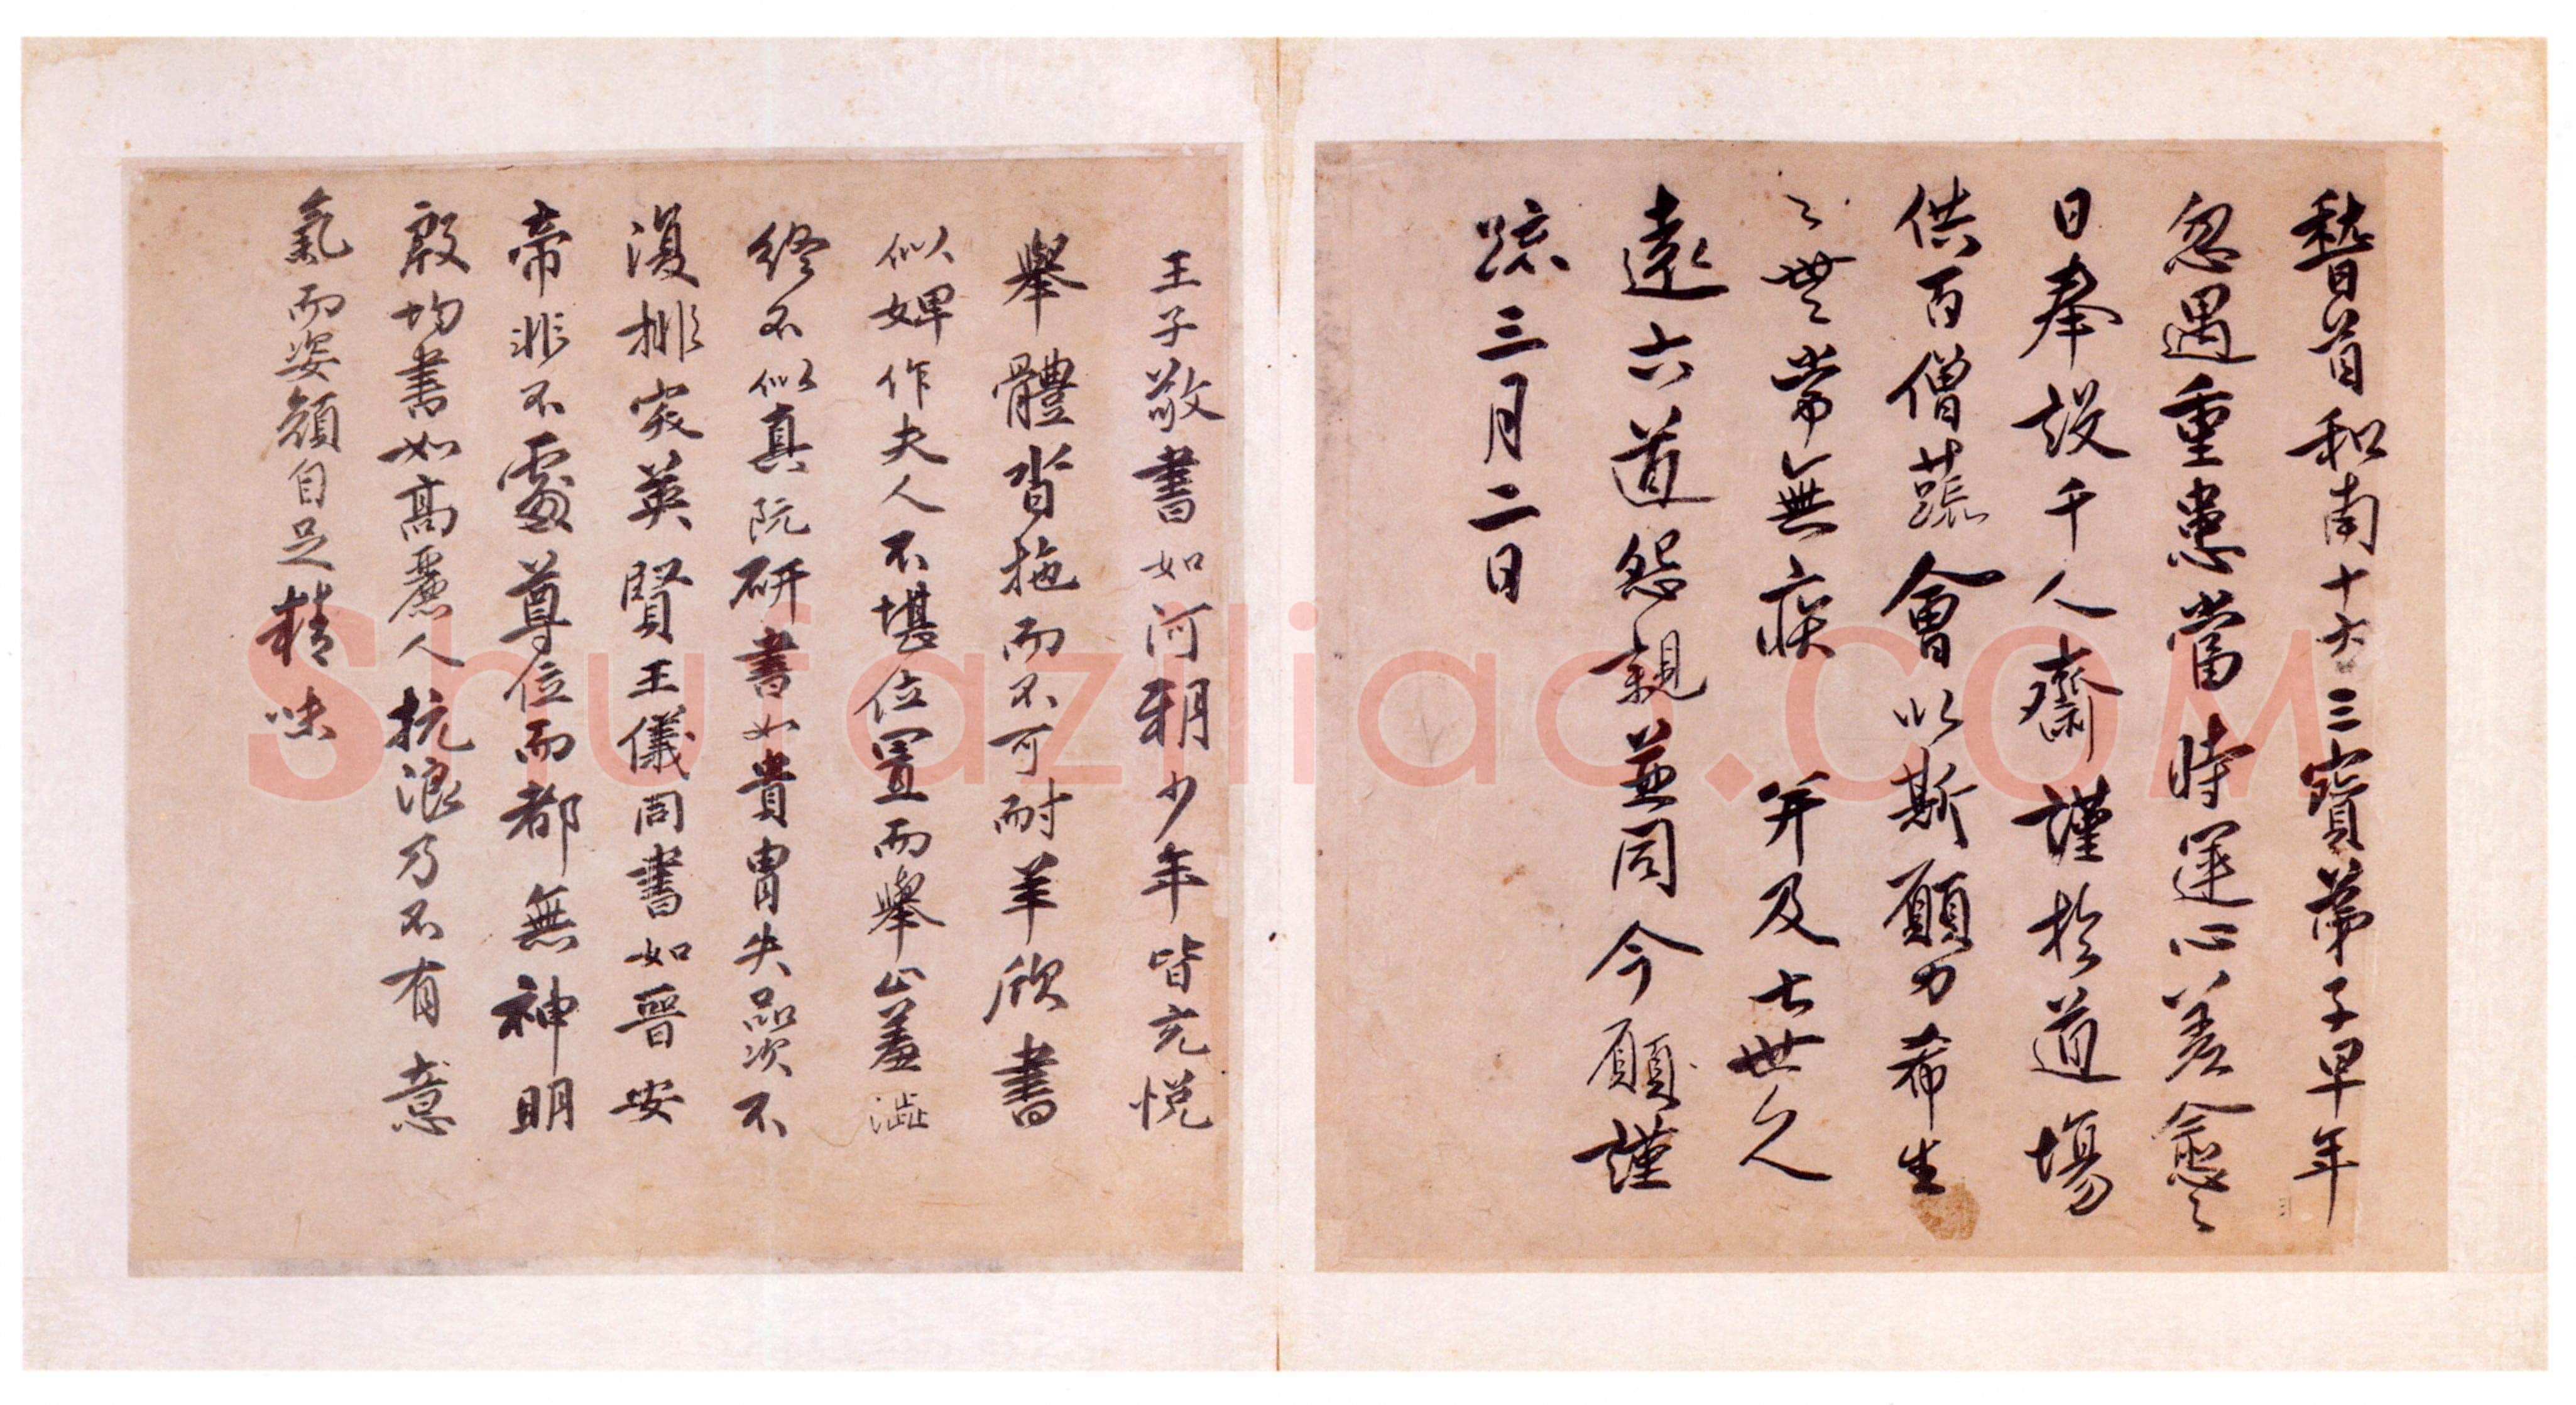 稽首和南十方三寶弟子早年
忽遇重患當時運心差愈之
日奉設千人齋謹於道場
供百僧蔬會以斯願力希生
〻世〻常無疾 并及七世久
遠六道怨親並同今願謹
疏三月二日
王子敬書如河朔少年皆充悦
舉體沓拖而不可耐羊欣書
似婢作夫人不堪位置而舉止羞澁
終不似真阮研書如貴胄失品次不
復排突英賢王儀同書如晉安
帝非不處尊位而都無神明
殷均書如高麗人抗浪乃不有意
氣而姿顔自足精味
Shufaziliao.COM